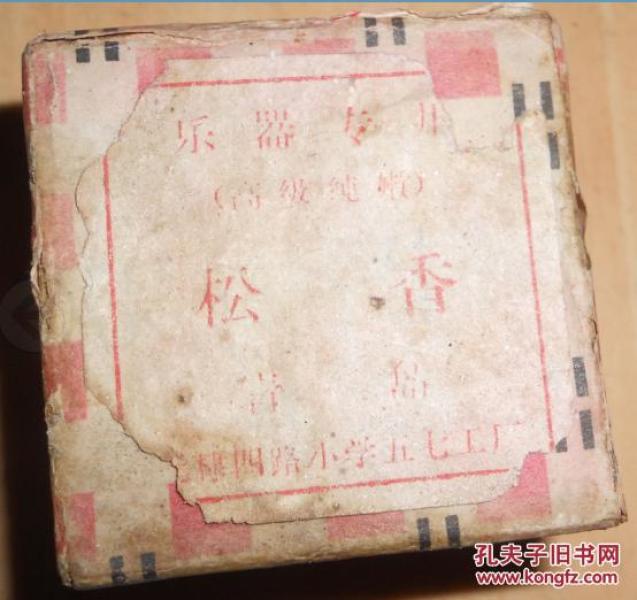 乐器专用
(高级纯嫩)
松香
青岛
桦四路小学五七工厂
孔夫子旧书网
www.kongfz.com